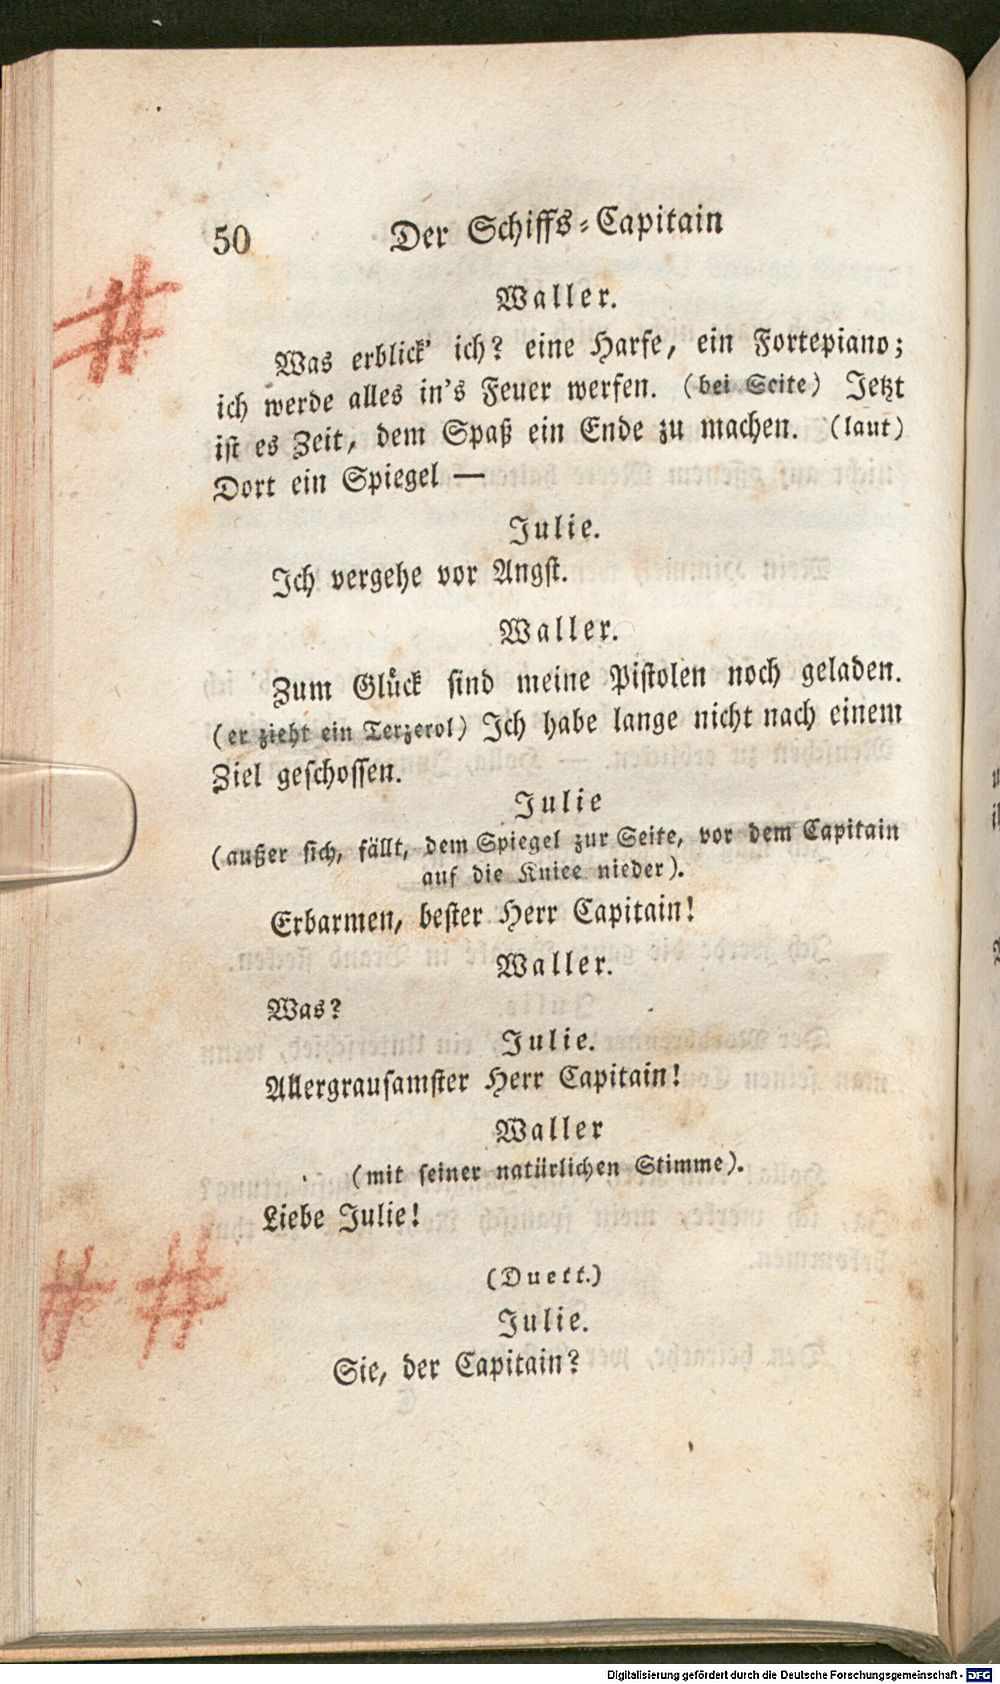 50 Der Schiffs-Capitain
Waller.
Was erblick' ich? eine Harfe, ein Fortepiano;
ich werde alles in's Feuer werfen. (bei Seite) Jetzt
ist es Zeit, dem Spaß ein Ende zu machen. (laut)
Dort ein Spiegel —
Julie.
Ich vergehe vor Angst.
Waller.
Zum Glück sind meine Pistolen noch geladen.
(er zieht ein Terzerol) Ich habe lange nicht nach einem
Ziel geschossen.
Julie
(außer sich, fällt, dem Spiegel zur Seite, vor dem Capitain
auf die Kniee nieder).
Erbarmen, bester Herr Capitain!
Waller.
Was?
Julie.
Allergrausamster Herr Capitain!
Waller
(mit seiner natürlichen Stimme).
Liebe Julie!
(Duett.)
Julie.
Sie, der Capitain?
Digitalisierung gefördert durch die Deutsche Forschungsgemeinschaft - DFG